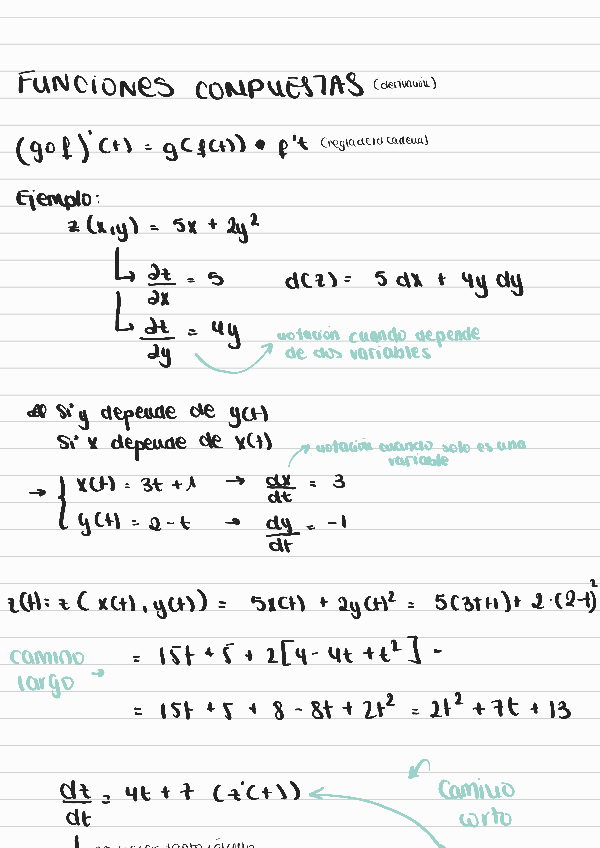 FUNCIONES COMPUESTAS (derivación)
(g∘f)'(t) = g(f(t)) • f't (regla de la cadena)
Ejemplo:
z(x,y) = 5x + 2y²
↳ ∂z/∂x = 5 d(z) = 5 dx + 4y dy
↳ ∂z/∂y = 4y
notación cuando depende
de dos variables
Si y depende de y(t)
Si x depende de x(t)
notación cuando solo es una
variable
→ { x(t) = 3t + 1 → dx/dt = 3
y(t) = 2 - t → dy/dt = -1
z(t) = z(x(t), y(t)) = 5x(t) + 2y(t)² = 5(3t+1) + 2·(2-t)²
camino
largo →
= 15t + 5 + 2[4 - 4t + t²] =
= 15t + 5 + 8 - 8t + 2t² = 2t² + 7t + 13
dz/dt = 4t + 7 (z'(t))
camino
corto